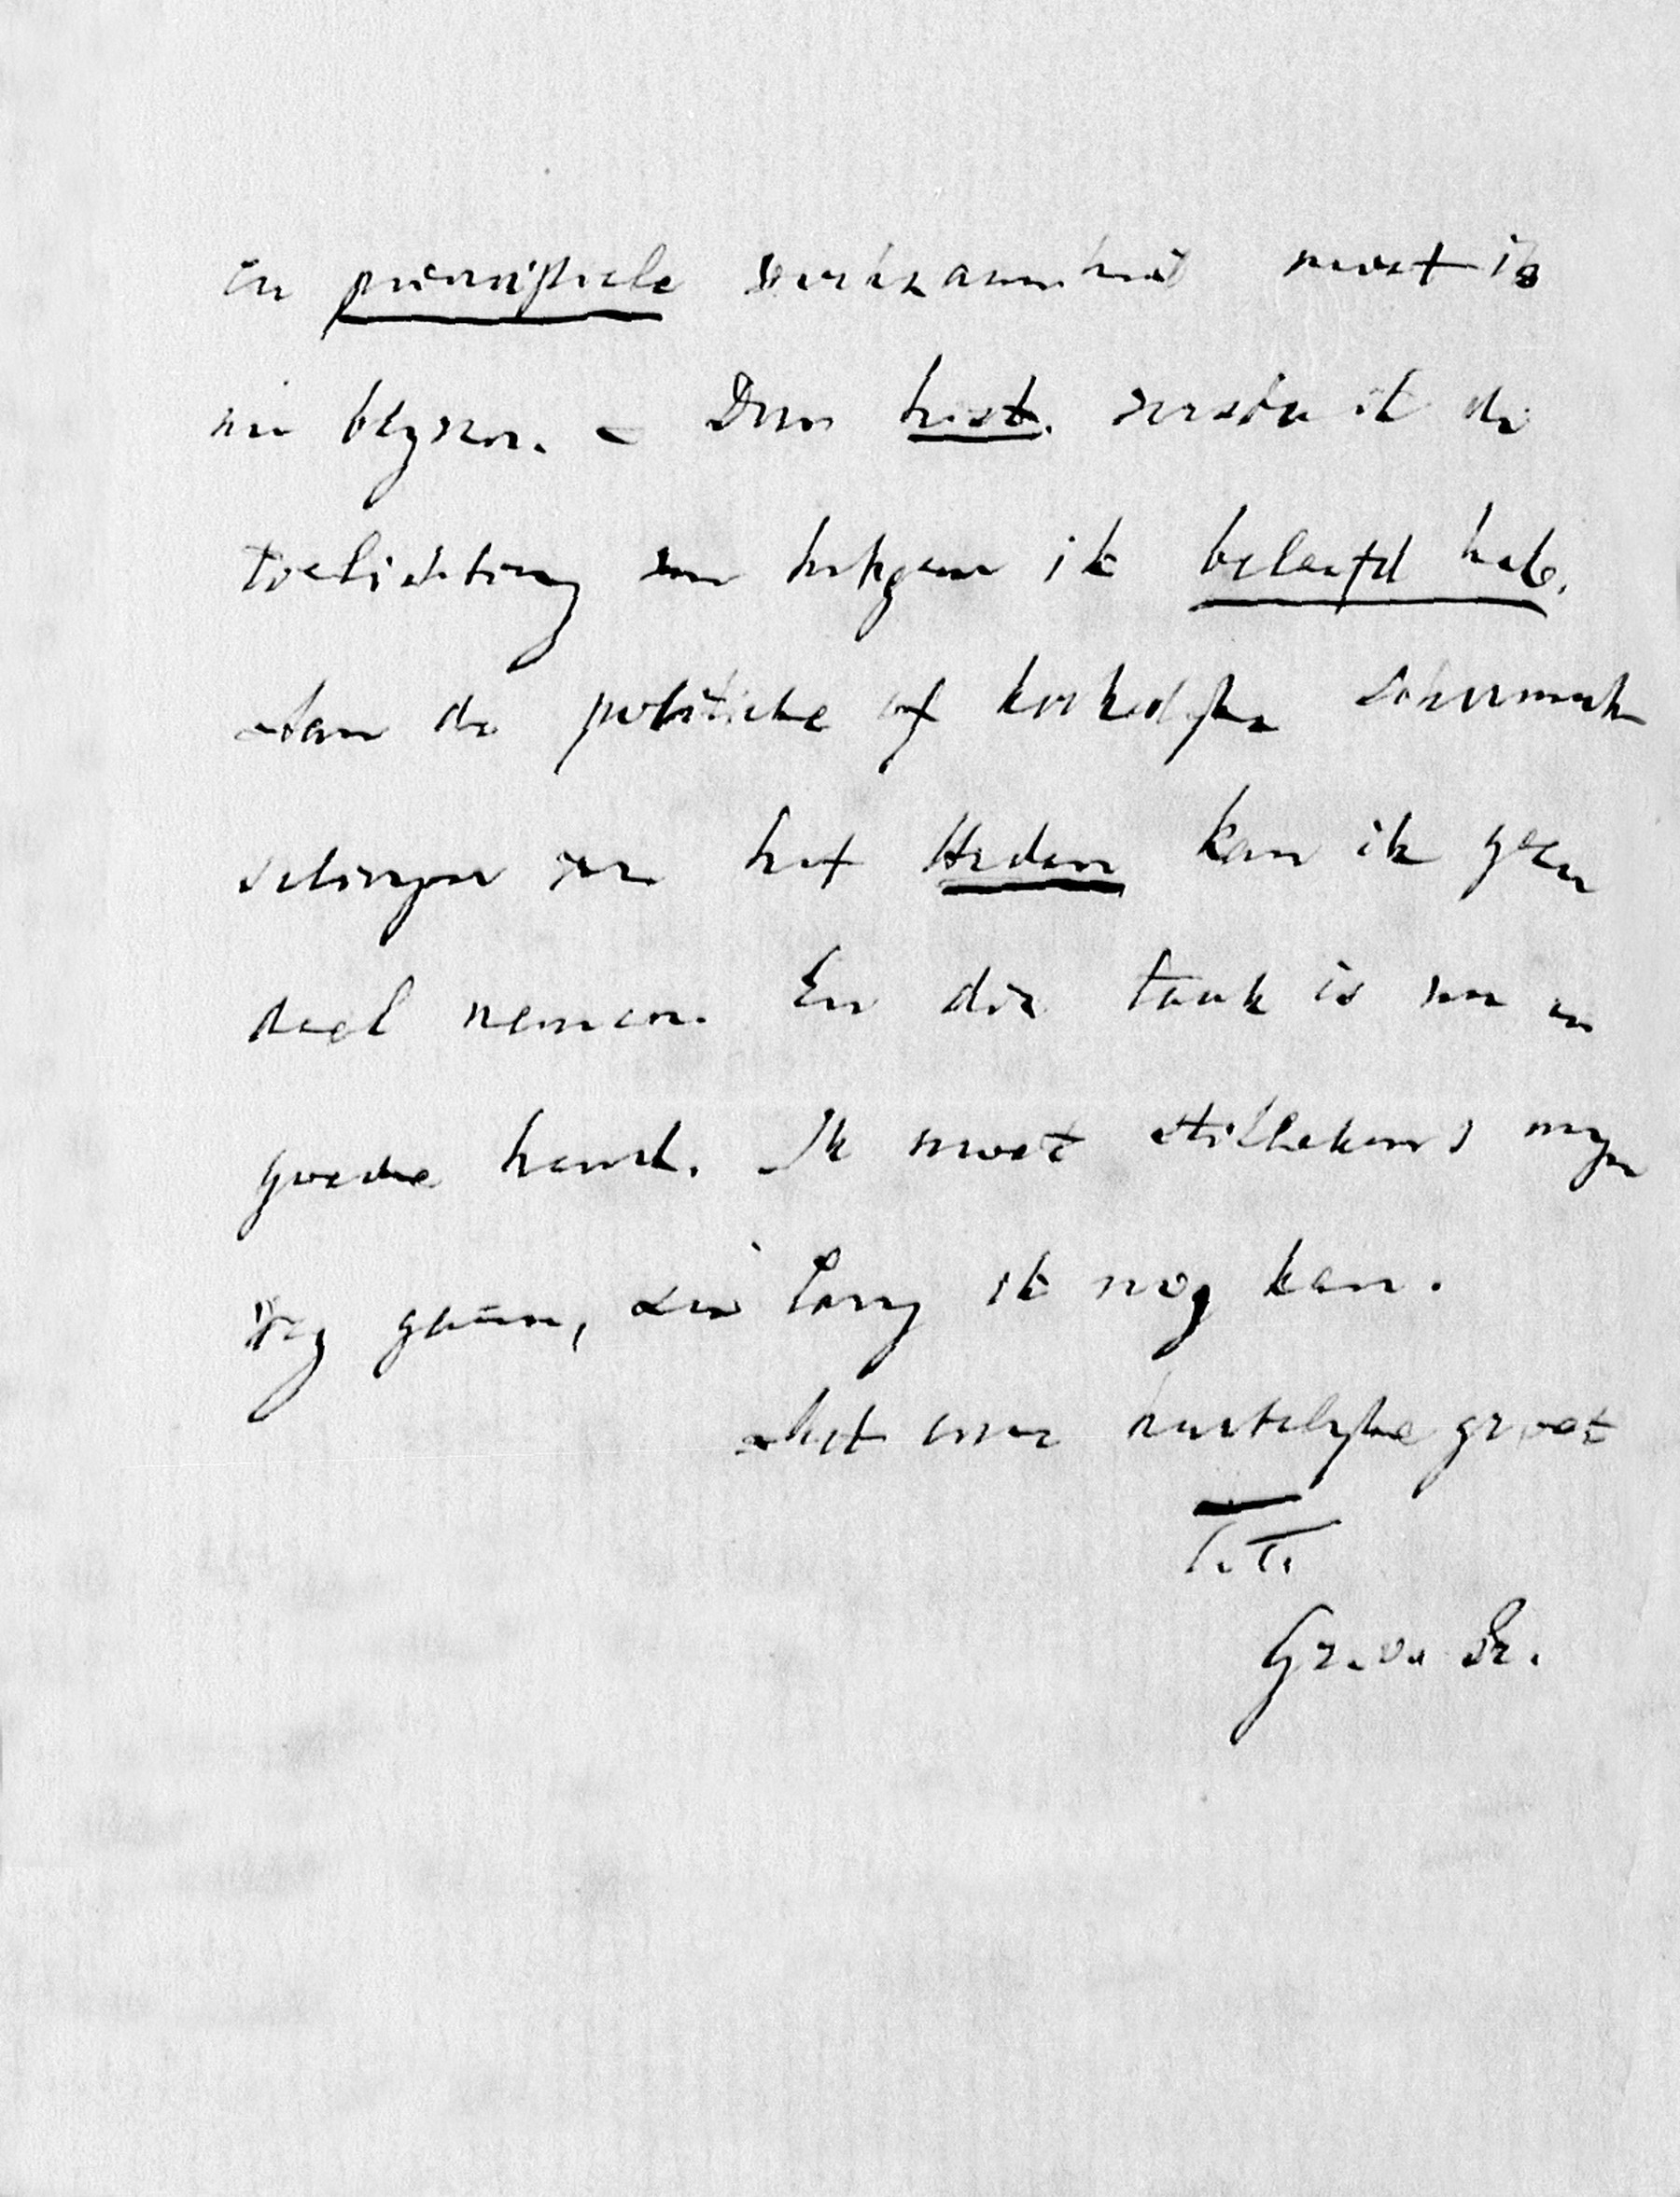 en principiele werkzaamheid moet ik
nu blyven. – Door hist. versta ik de
toelichting van hetgeen ik beleefd heb.
Aan de politieke of kerkelyke
van het Heden kan ik geen
deel nemen. En die taak is nu in
goede hand. Ik moet stillekens myn
weg gaan, zoo lang ik nog kan.
Met onze hartelyke groet
T.T.
Gr. v. Pr.